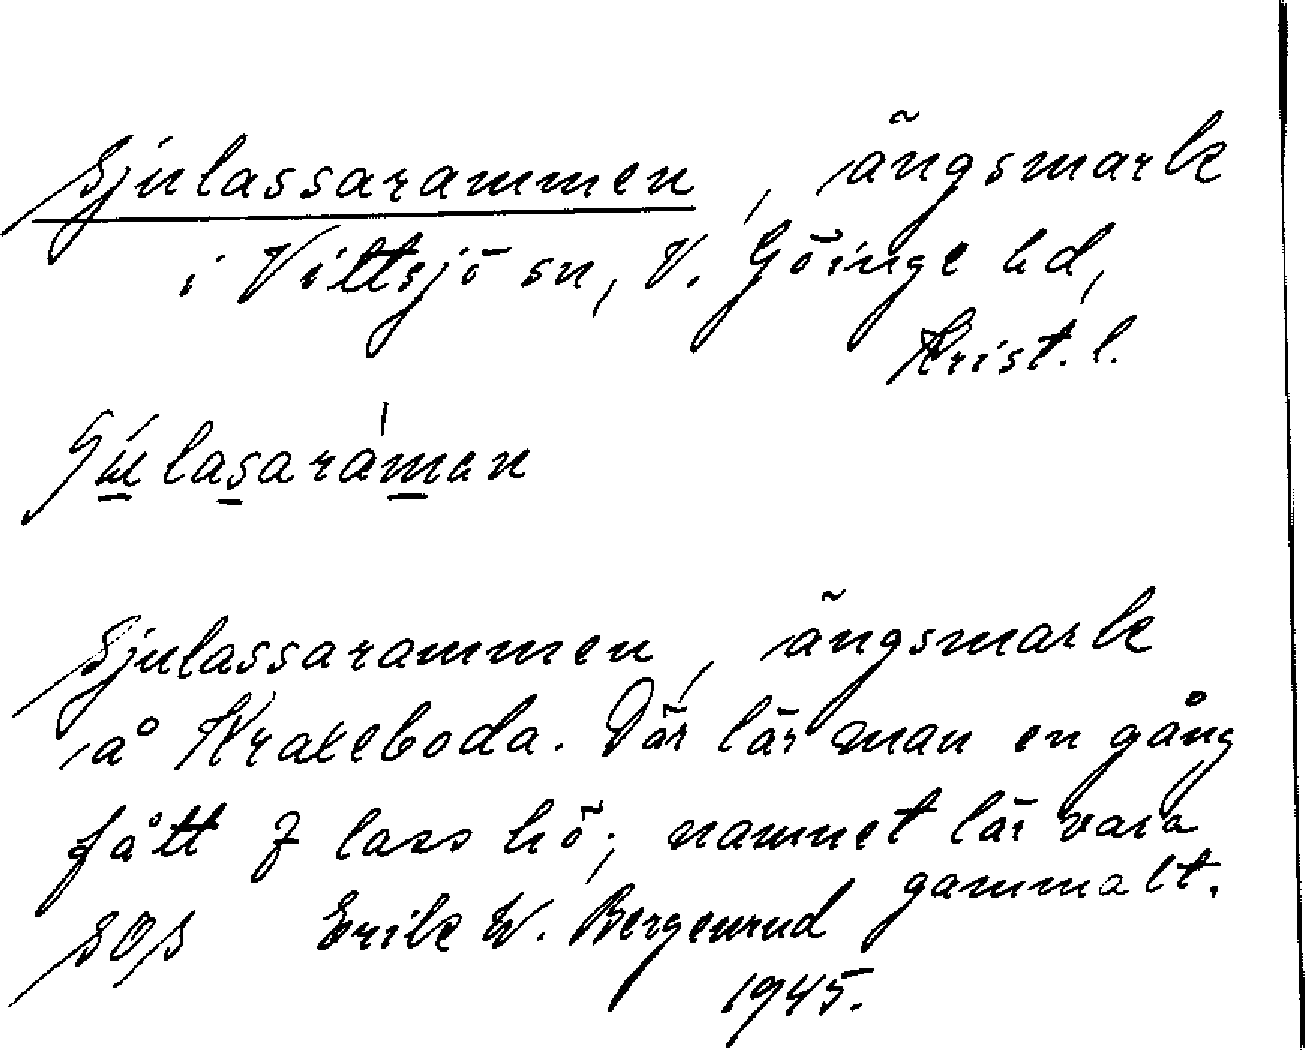 Sjulassarammen, ängsmark
i Vittsjö sn, V. Göinge hd,
Krist. l.
Sjulassarammen, ängsmark
å Krakeboda. Där lär man en gång
fått 7 lass hö; namnet lär vara
gammalt.
SOS Erik W. Bergenrud
1945.